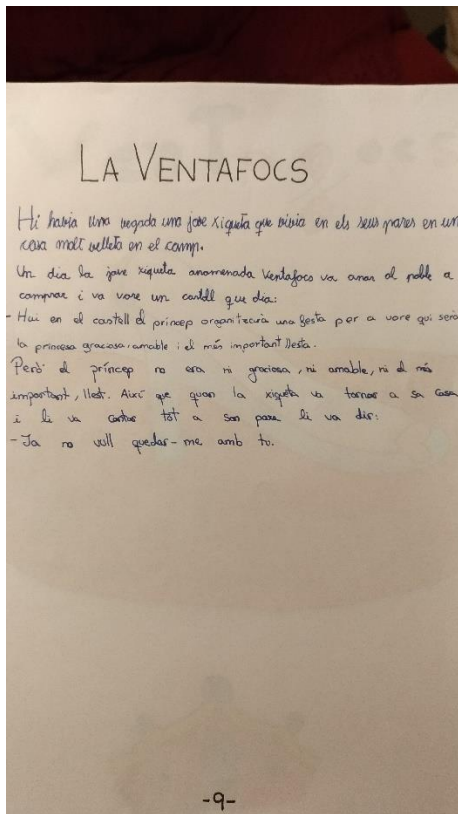 LA VENTAFOCS
Hi havia una vegada una jove xiqueta que vivia en els seus pares en un
casa molt velleta en el camp.
Un dia la jove xiqueta anomenada Ventafocs va anar al poble a
comprar i va vore un cartell que dia:
- Hui en el castell el príncep organitzarà una festa per a vore qui serà
la princesa graciosa, amable i el més important llesta.
Però el príncep no era ni graciosa, ni amable, ni el més
important, llest. Així que quan la xiqueta va tornar a sa casa
i li va contar tot a son pare li va dir:
- Ja no vull quedar-me amb tu.
-9-